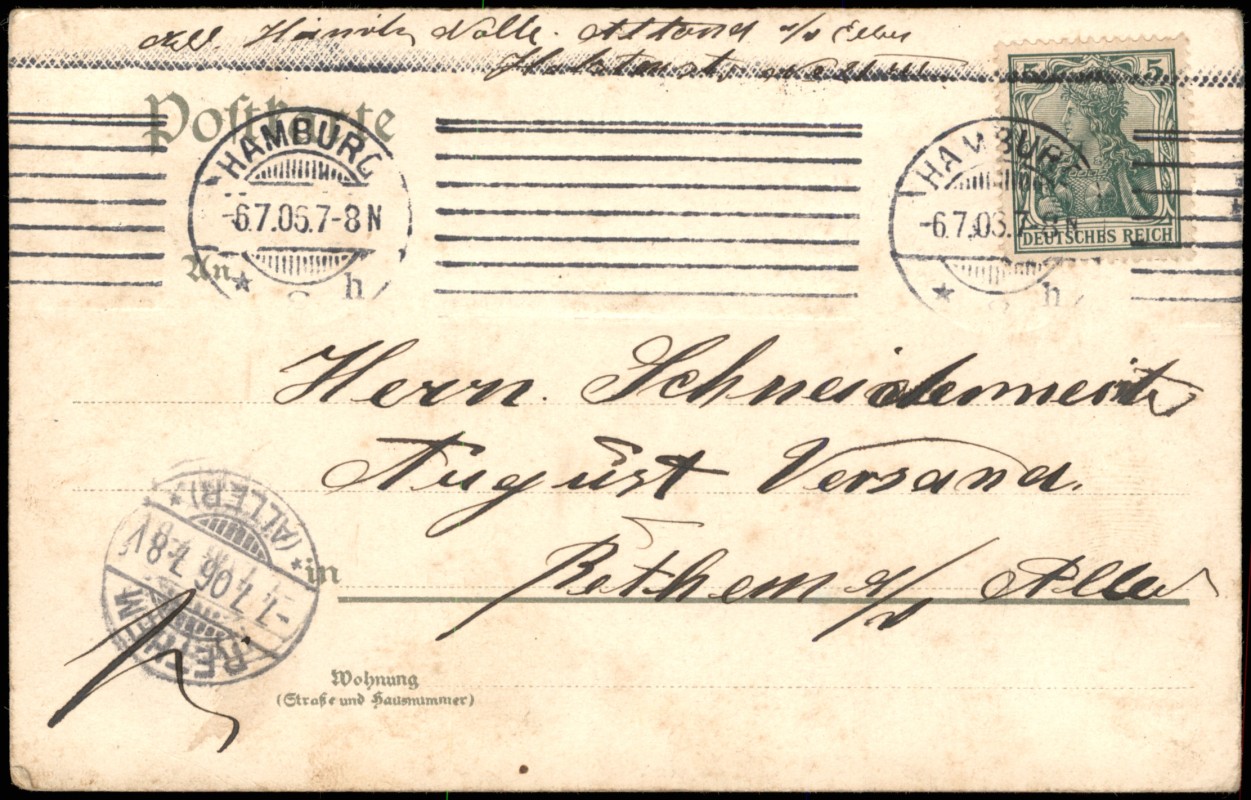 Heinrich Nolle. Altona a/d Elbe
Postkarte
5 5
HAMBURG
-6.7.06.7-8N
h
HAMBURG
-6.7.06.7-8N
h
DEUTSCHES REICH
An
Herrn. Schneidermeist
August Versand.
in Rethem a/d Aller
RETHEM
-7.7.06 7-8V
*(ALLER)*
Wohnung
(Straße und Hausnummer)